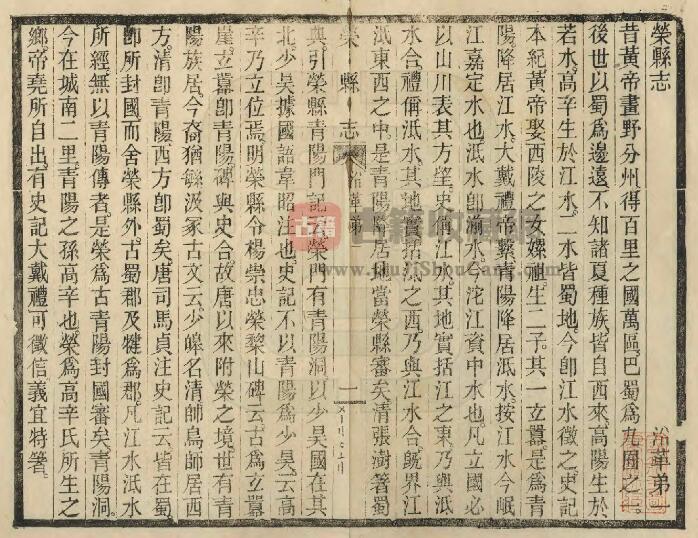 榮縣志
沿革弟一
昔黃帝畫野分州得百里之國萬區巴蜀爲
後世以蜀爲邊遠不知諸夏種族皆自西來高陽生於
若水高辛生於江水二水皆蜀地今卽江水徵之史記
本紀黃帝娶西陵之女嫘祖生二子其一立囂是爲青
陽降居江水大戴禮帝繫青陽降居泜水按江水今岷
江嘉定水也泜水卽湔水今沱江資中水也凡立國必
以山川表其方望史偁江水其地實括江之東乃與泜
水合禮偁泜水其地實括泜之西乃與江水合旣界江
泜東西之中是青陽所居地當榮縣審矣清張澍著蜀
榮縣志
沿革弟一
一
典引榮縣青陽門記云榮門有青陽洞以少昊國在其
北少昊據國語韋昭注也史記不以青陽爲少昊云高
辛乃立位焉明榮縣令楊崇忠榮黎山碑云古爲立囂
崖立囂卽青陽碑與史合故唐以來附榮之境世有青
陽族居今裔猶緐汲冢古文云少皞名清師鳥師居西
方清卽青陽西方卽蜀矣唐司馬貞注史記云皆在蜀
卽所封國而舍榮縣外古蜀郡及犍爲郡凡江水泜水
所經無以青陽傳者是榮爲古青陽封國審矣青陽洞
今在城南二里青陽之孫高辛也榮爲高辛氏所生之
鄉帝堯所自出有史記大戴禮可徵信義宜特箸
古籍
古籍收藏網
www.GujiShouCang.com